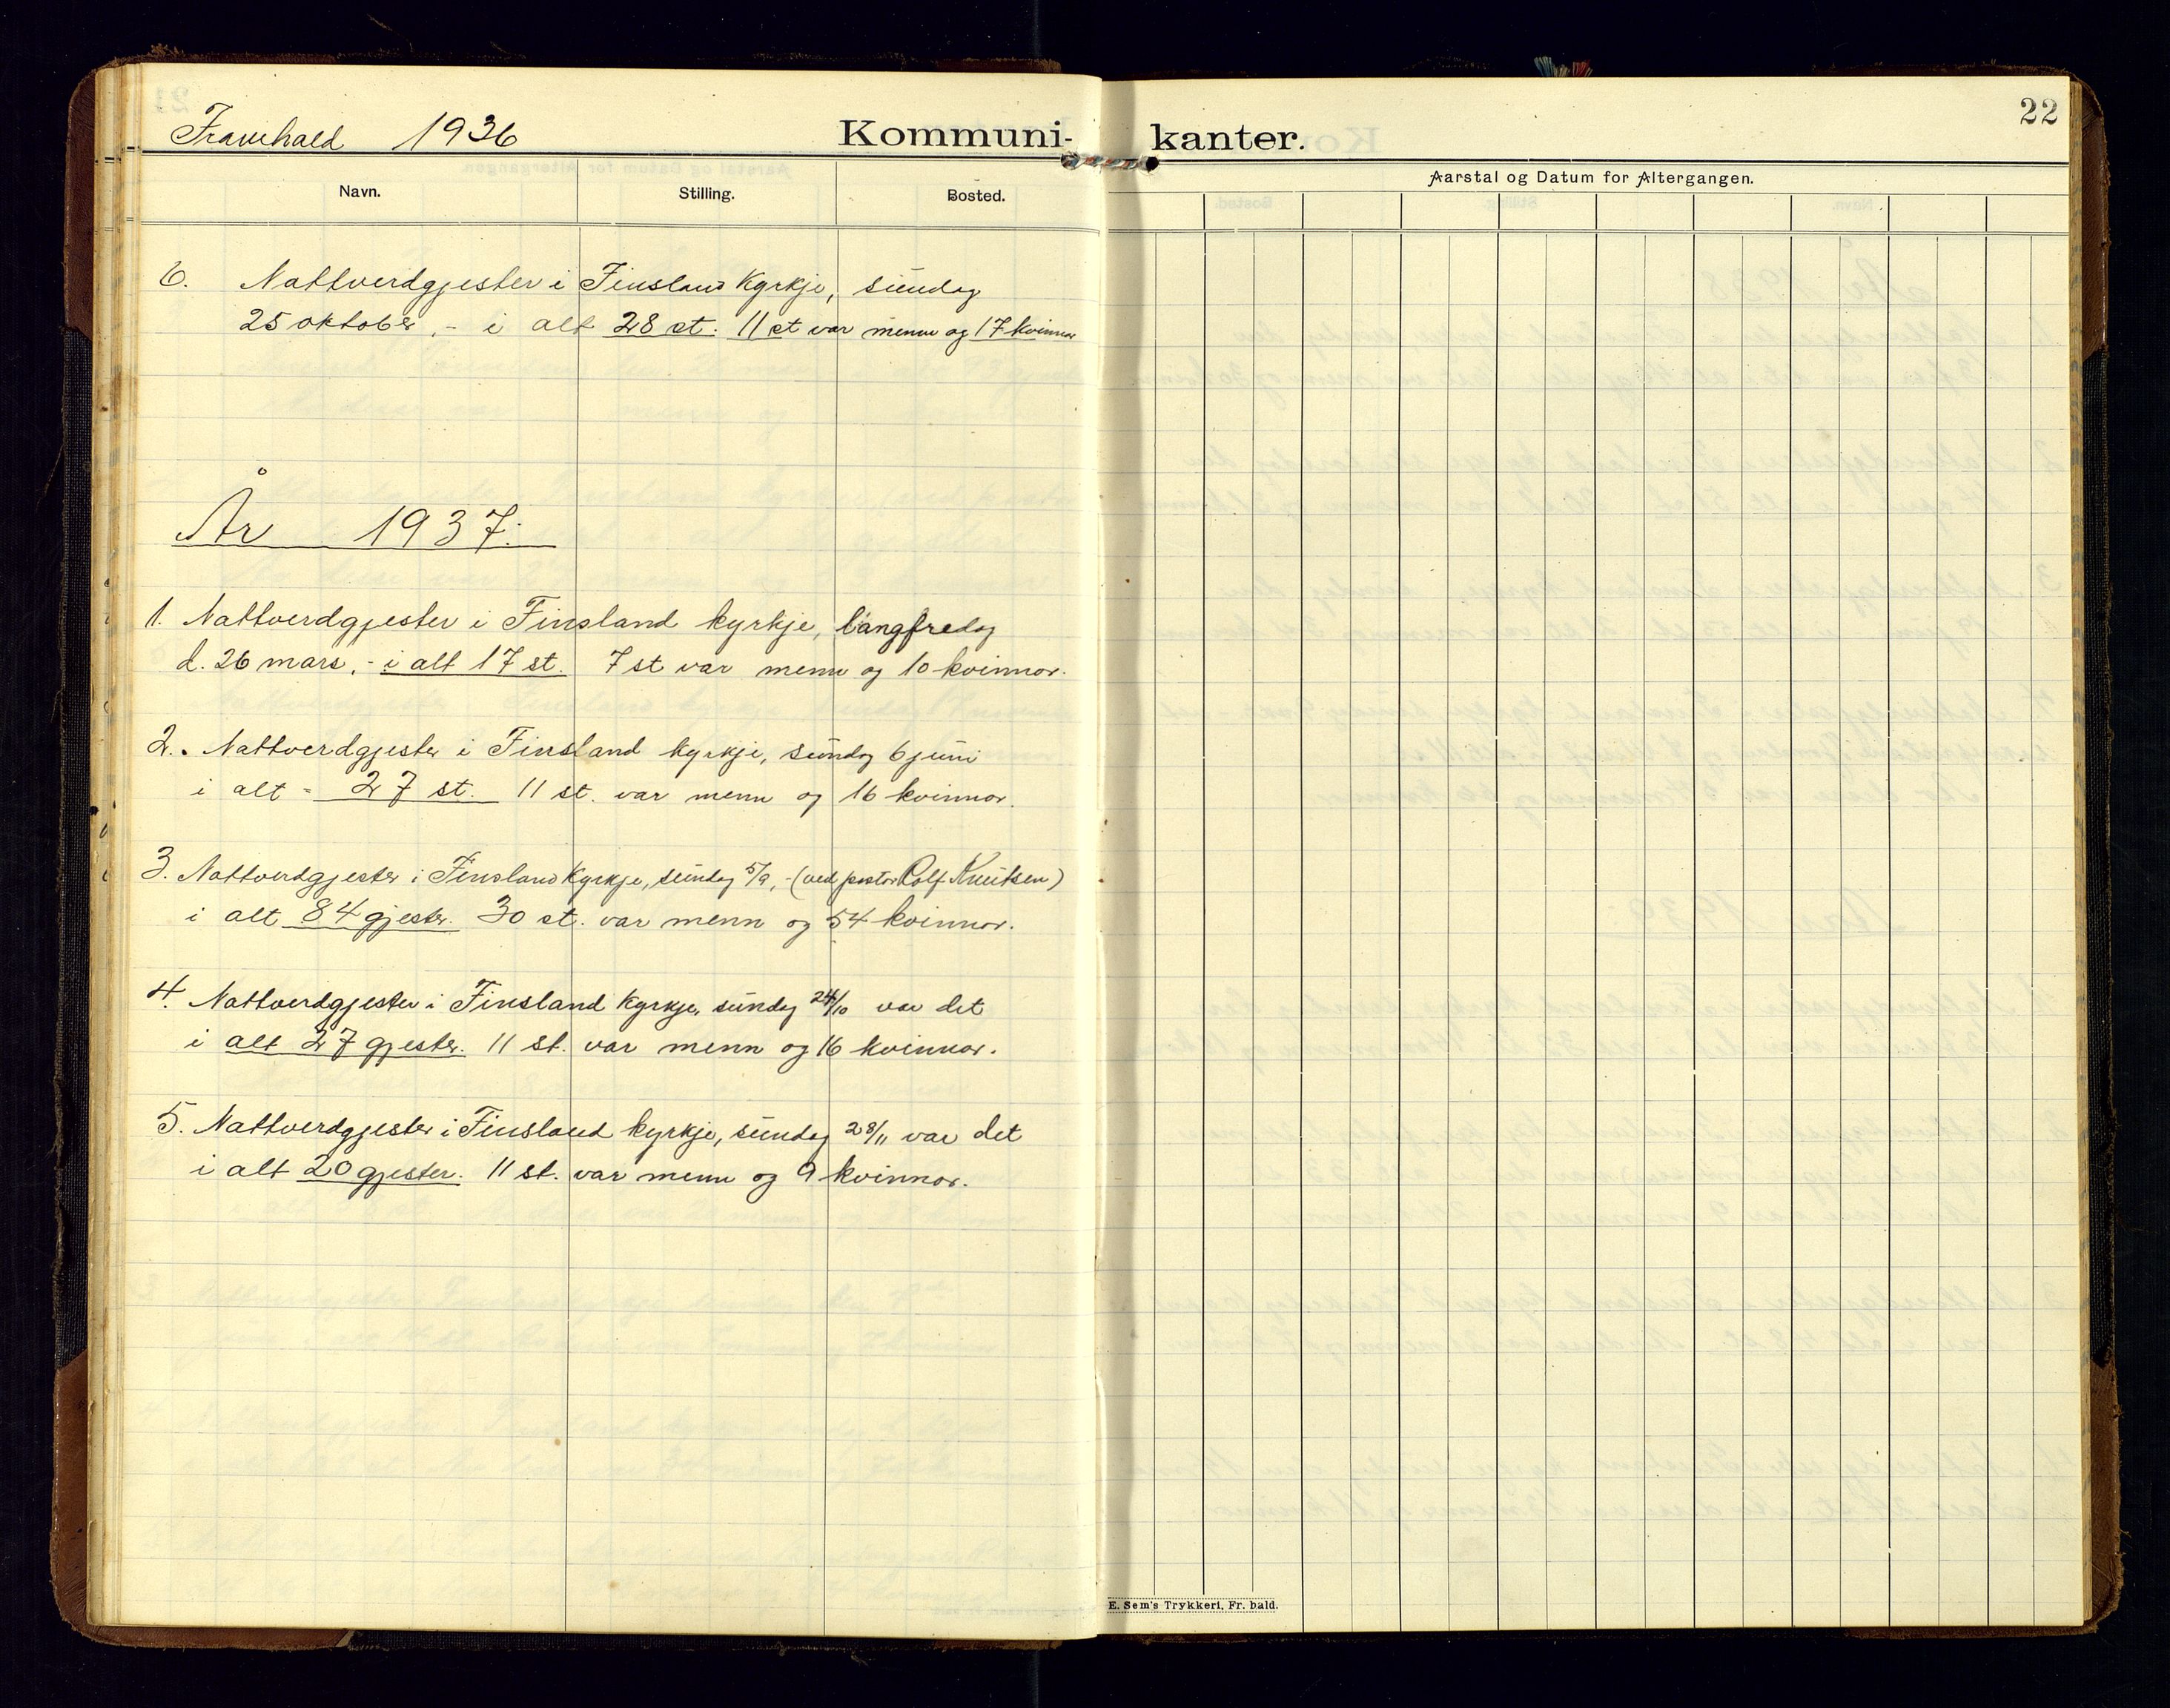 Framhald 1936
Kommuni-
kanter.
22
Navn.
Stilling.
Bosted.
Aarstal og Datum for Altergangen.
6. Nattverdgjester i Finsland Kyrkje, sündag
25 oktober, - i alt 28 st. 11 st var menn og 17 kvinnor
År 1937.
1. Nattverdgjester i Finsland kyrkje, langfredag
d. 26 mars, - i alt 17 st. 7 st var menn og 10 kvinnor.
2. Nattverdgjester i Finsland kyrkje, sündag 6 juni
i alt - 27 st. 11 st. var menn og 16 kvinnor.
3. Nattverdgjester i Finsland Kyrkje, sündag 5/9, - (ved pastor Rolf Knütsen)
i alt 84 gjester. 30 st. var menn og 54 kvinnor.
4. Nattverdgjester i Finsland Kyrkje, sündag 24/10 var det
i alt 27 gjester. 11 st. var menn og 16 kvinnor.
5. Nattverdgjester i Finsland kyrkje, sündag 28/11 var det
i alt 20 gjester. 11 st. var menn og 9 kvinnor.
E. Sem's Trykkeri, Fr. hald.